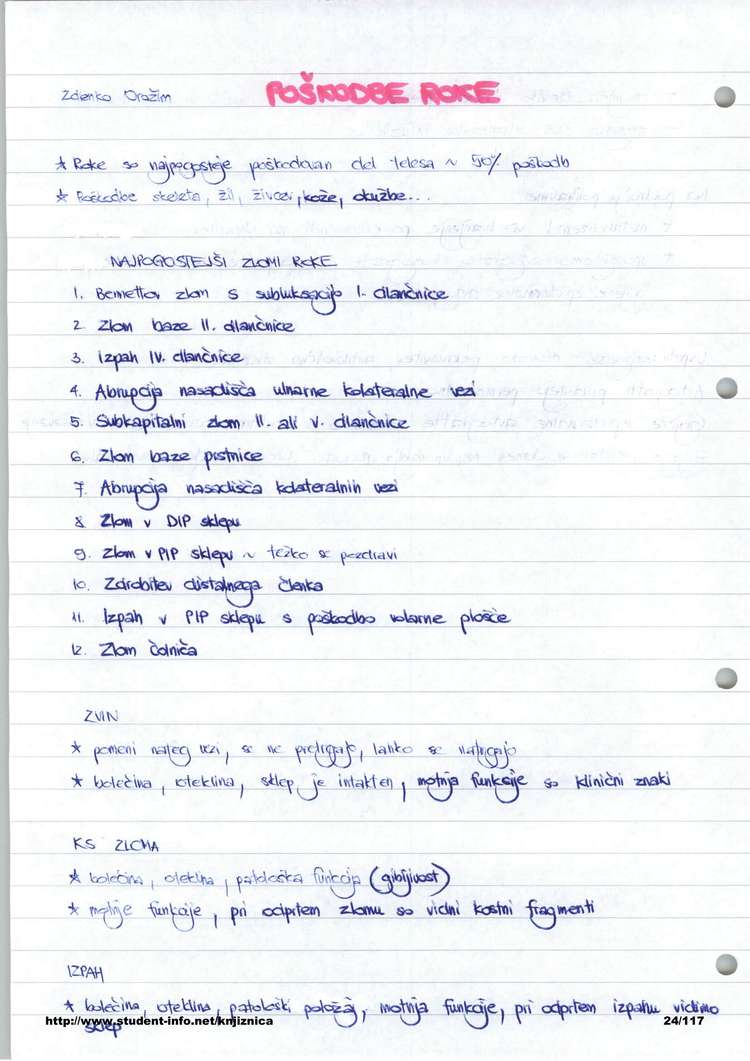 Zdenko Oražim
POŠKODBE ROKE
* Roke so najpogosteje poškodovan del telesa ~ 50% poškodb
* Poškodbe skeleta, žil, živcev, kože, okužbe...
NAJPOGOSTEJŠI ZLOMI ROKE
1. Bennettov zlom s subluksacijo I. dlančnice
2 Zlom baze II. dlančnice
3. Izpah IV. dlančnice
4. Abrupcija nasadišča ulnarne kolateralne vezi
5. Subkapitalni zlom II. ali V. dlančnice
6. Zlom baze prstnice
7. Abrupcija nasadišča kolateralnih vezi
8 Zlom v DIP sklepu
9. Zlom v PIP sklepu ~ težko se pozdravi
10. Zdrobitev distalnega členka
11. Izpah v PIP sklepu s poškodbo volarne plošče
12. Zlom čolniča
ZVIN
* pomeni nateg vezi, se ne pretrgajo, lahko se natrgajo
* bolečina, oteklina, sklep je intakten, motnja funkcije so klinični znaki
KS ZLOMA
* bolečina, oteklina, patološka funkcija (gibljivost)
* motnje funkcije, pri odprtem zlomu so vidni kostni fragmenti
IZPAH
* bolečina, oteklina, patološki položaj, motnja funkcije, pri odprtem izpahu vidimo
sklep
http://www.student-info.net/knjiznica
24/117